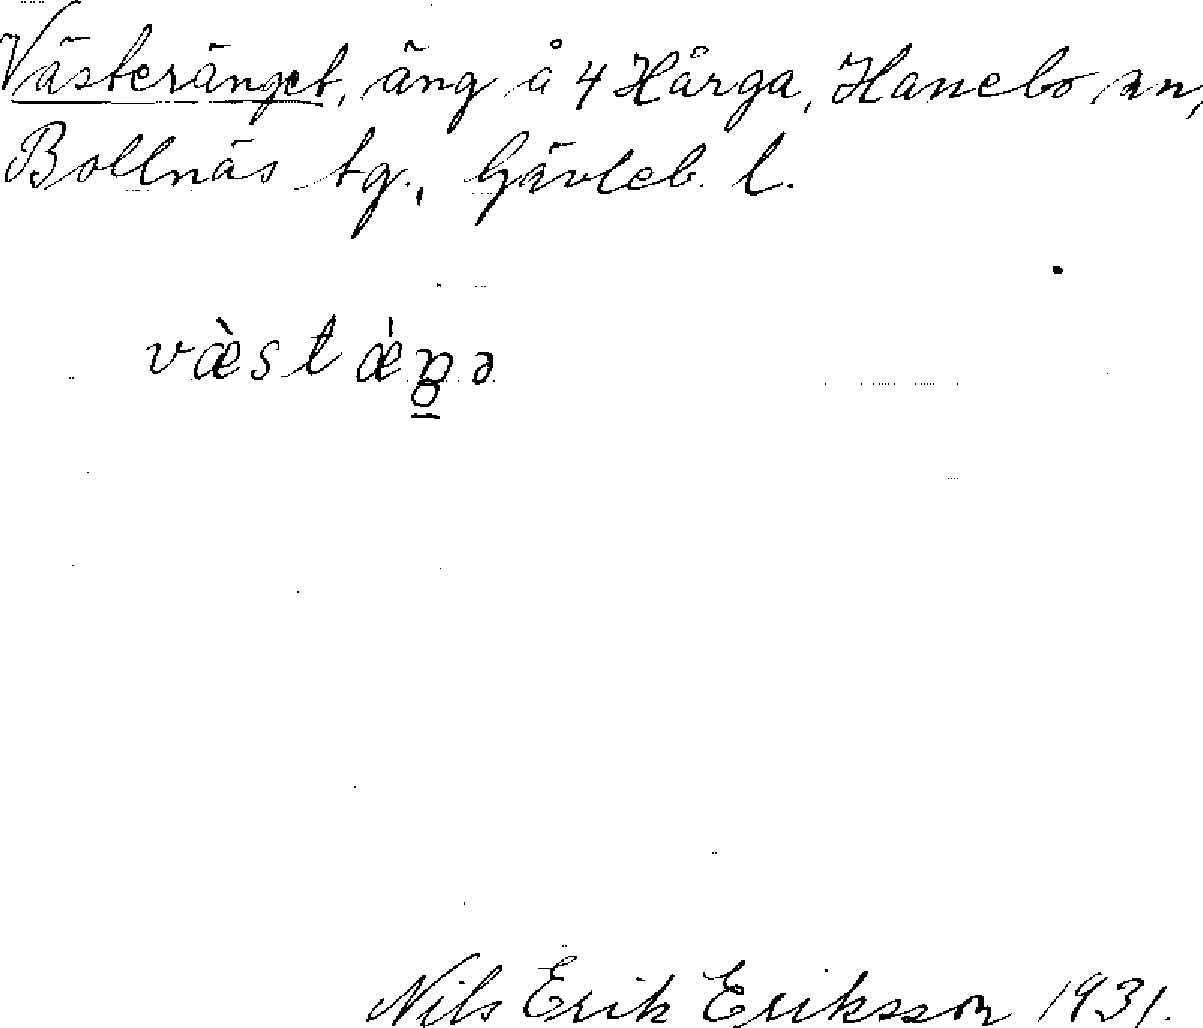 Västeränget, äng å 4 Hårga, Hanebo sn,
Bollnäs tg., Gävleb. l.
væ̀stǽŋə
Nils Erik Eriksson 1931.